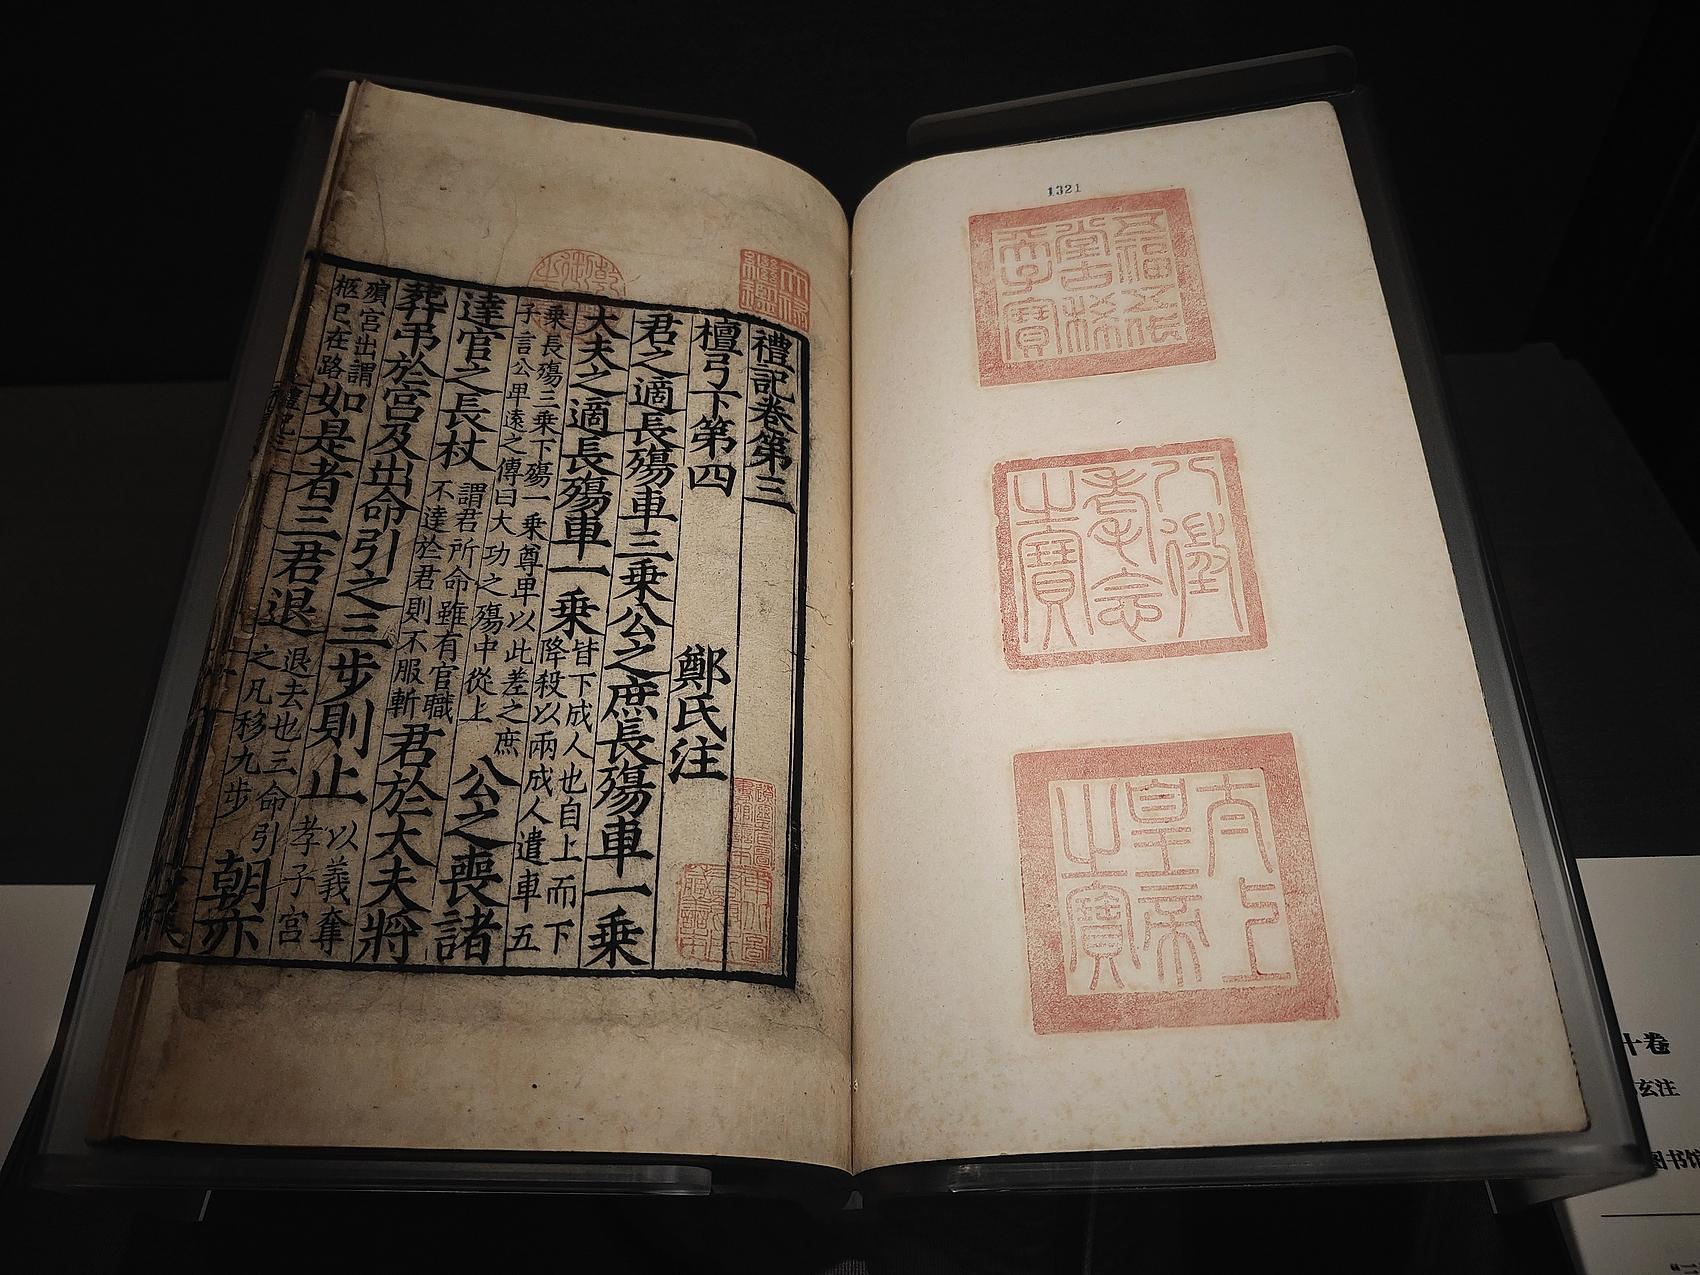 1321
五福五代堂古稀天子寶
八徵耄念之寶
太上皇帝之寶
天祿繼鑑
禮記卷第三
檀弓下第四 鄭氏注
君之適長殤車三乘公之庶長殤車一乘
大夫之適長殤車一乘 皆下成人也自上而下
降殺以兩成人遣車五
乘長殤三乘下殤一乘尊卑以此差之庶
子言公卑遠之傳曰大功之殤中從上 公之喪諸
達官之長杖 謂君所命雖有官職
不達於君則不服斬 君於大夫將
葬弔於宮及出命引之三步則止 以義奪
孝子宮
殯宮出謂
柩已在路 如是者三君退 退去也三命引
之凡移九步 朝亦
十卷
玄注
图书馆